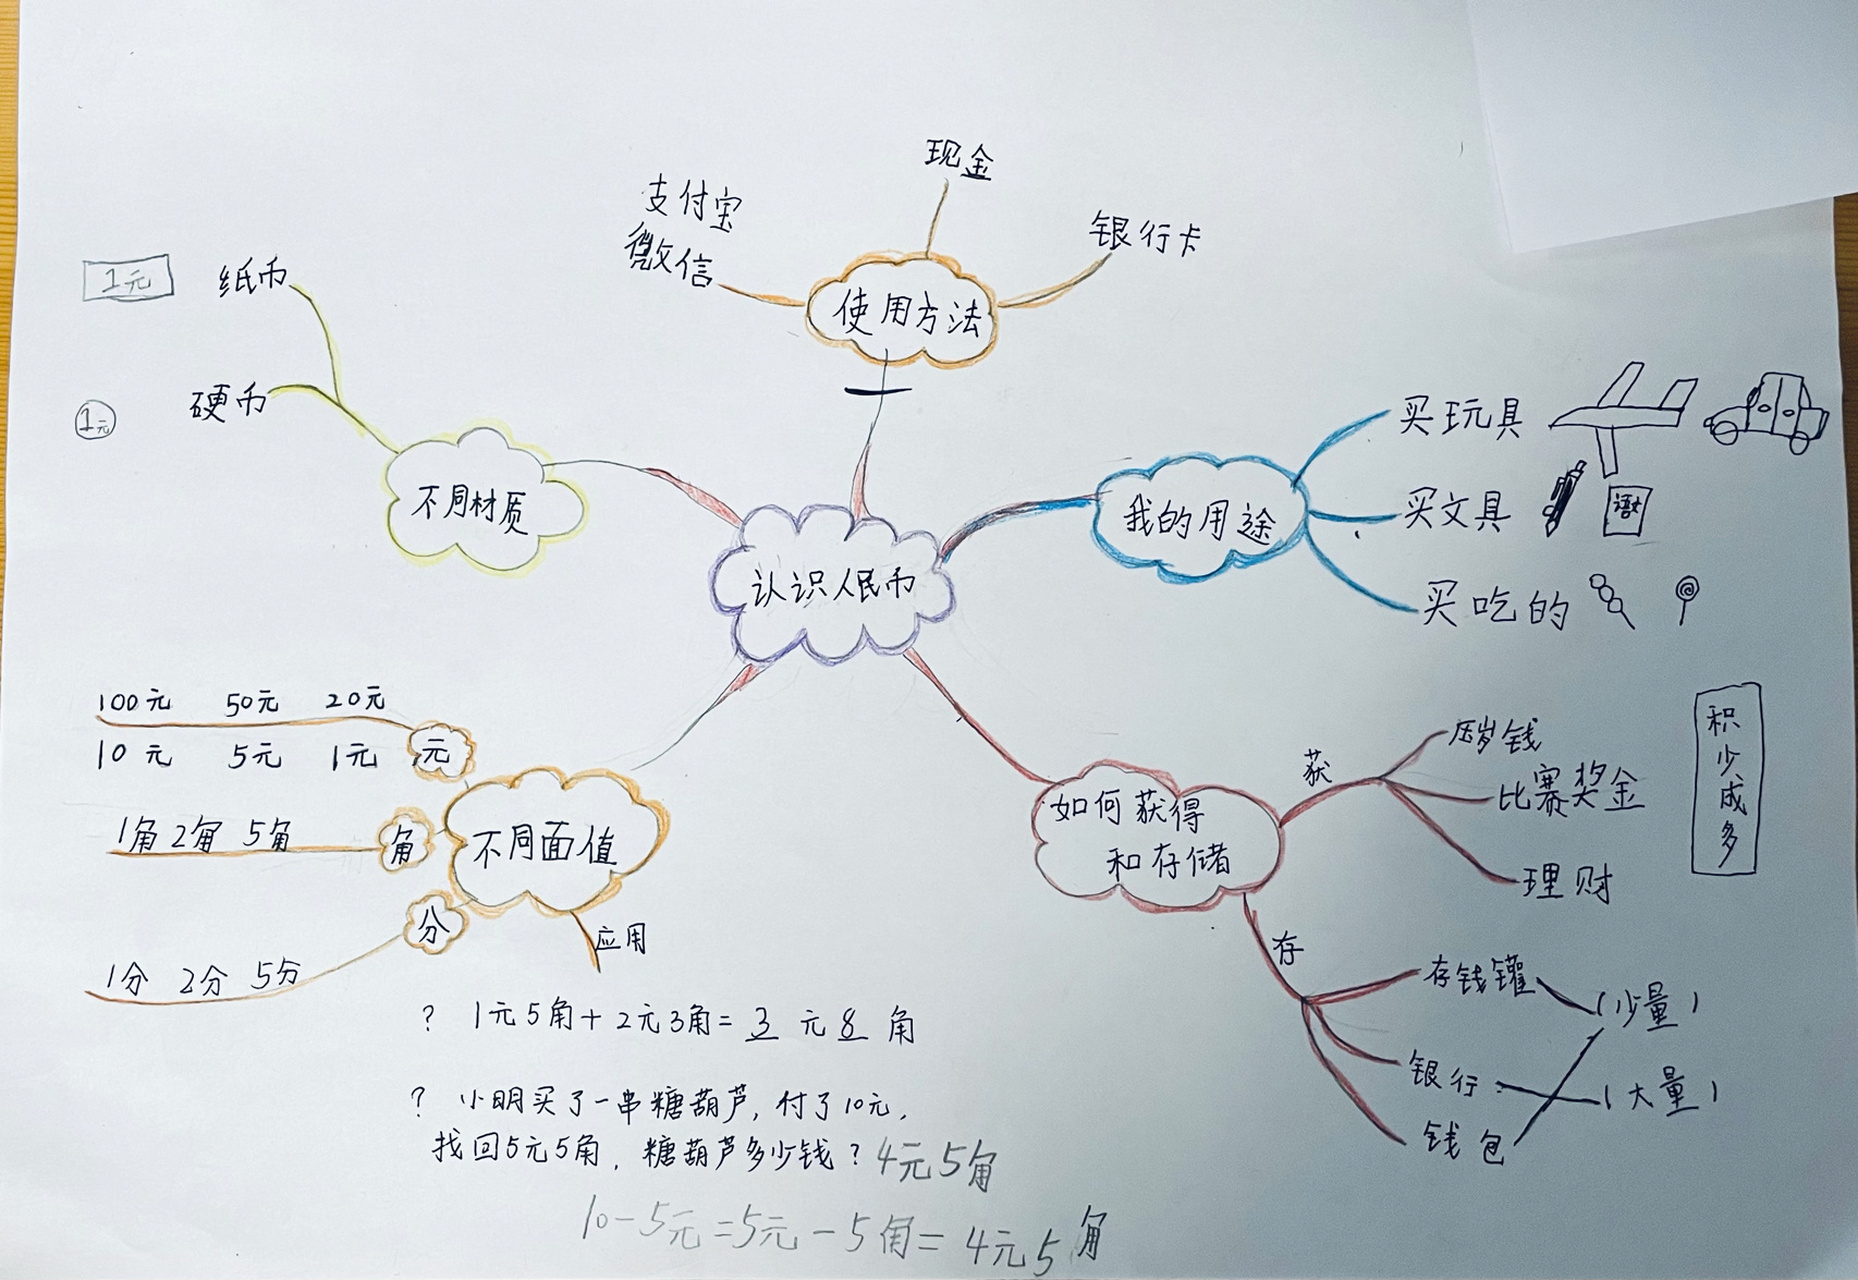 认识人民币
使用方法
支付宝
微信
现金
银行卡
我的用途
买玩具
买文具
买吃的
如何获得
和存储
获
压岁钱
比赛奖金
理财
积少成多
存
存钱罐
银行
钱包
(少量)
(大量)
不同面值
元
100元 50元 20元
10元 5元 1元
角
1角 2角 5角
分
1分 2分 5分
应用
? 1元5角+2元3角=3元8角
? 小明买了一串糖葫芦,付了10元,
找回5元5角,糖葫芦多少钱?4元5角
10-5元=5元-5角=4元5角
不同材质
纸币
1元
硬币
1元